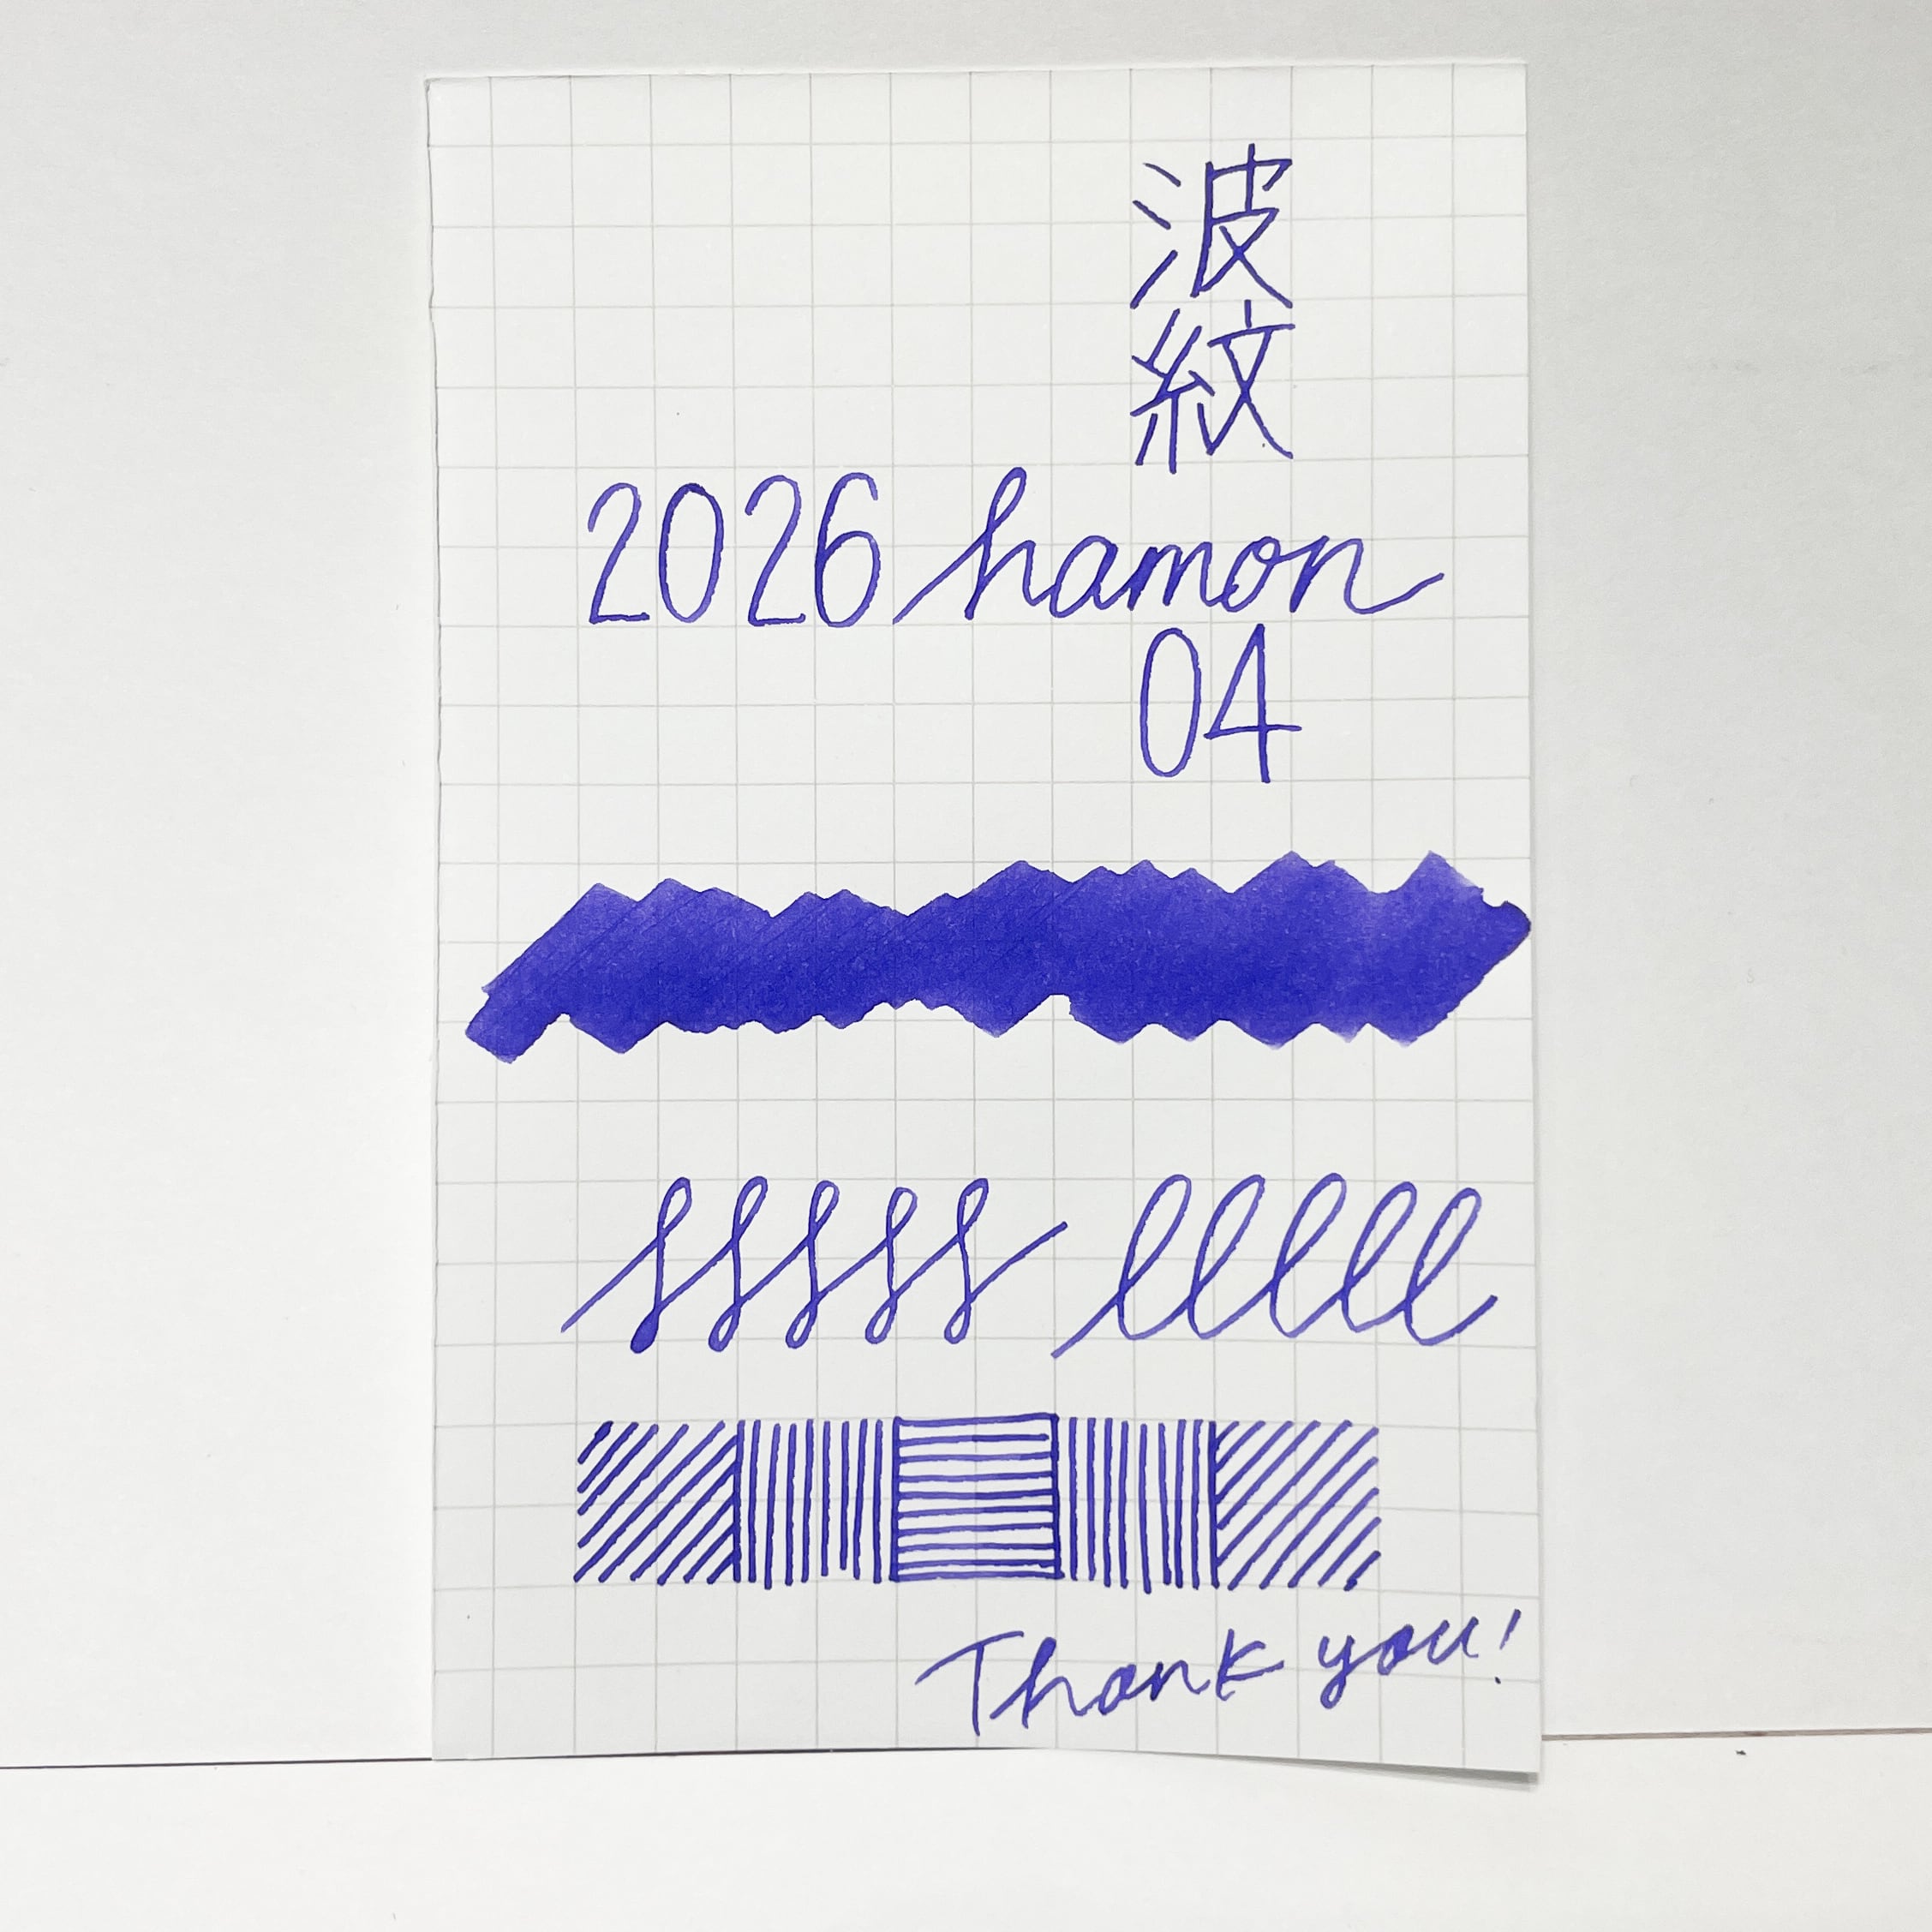 波紋
2026 hamon
04
sssss lllll
Thank you!